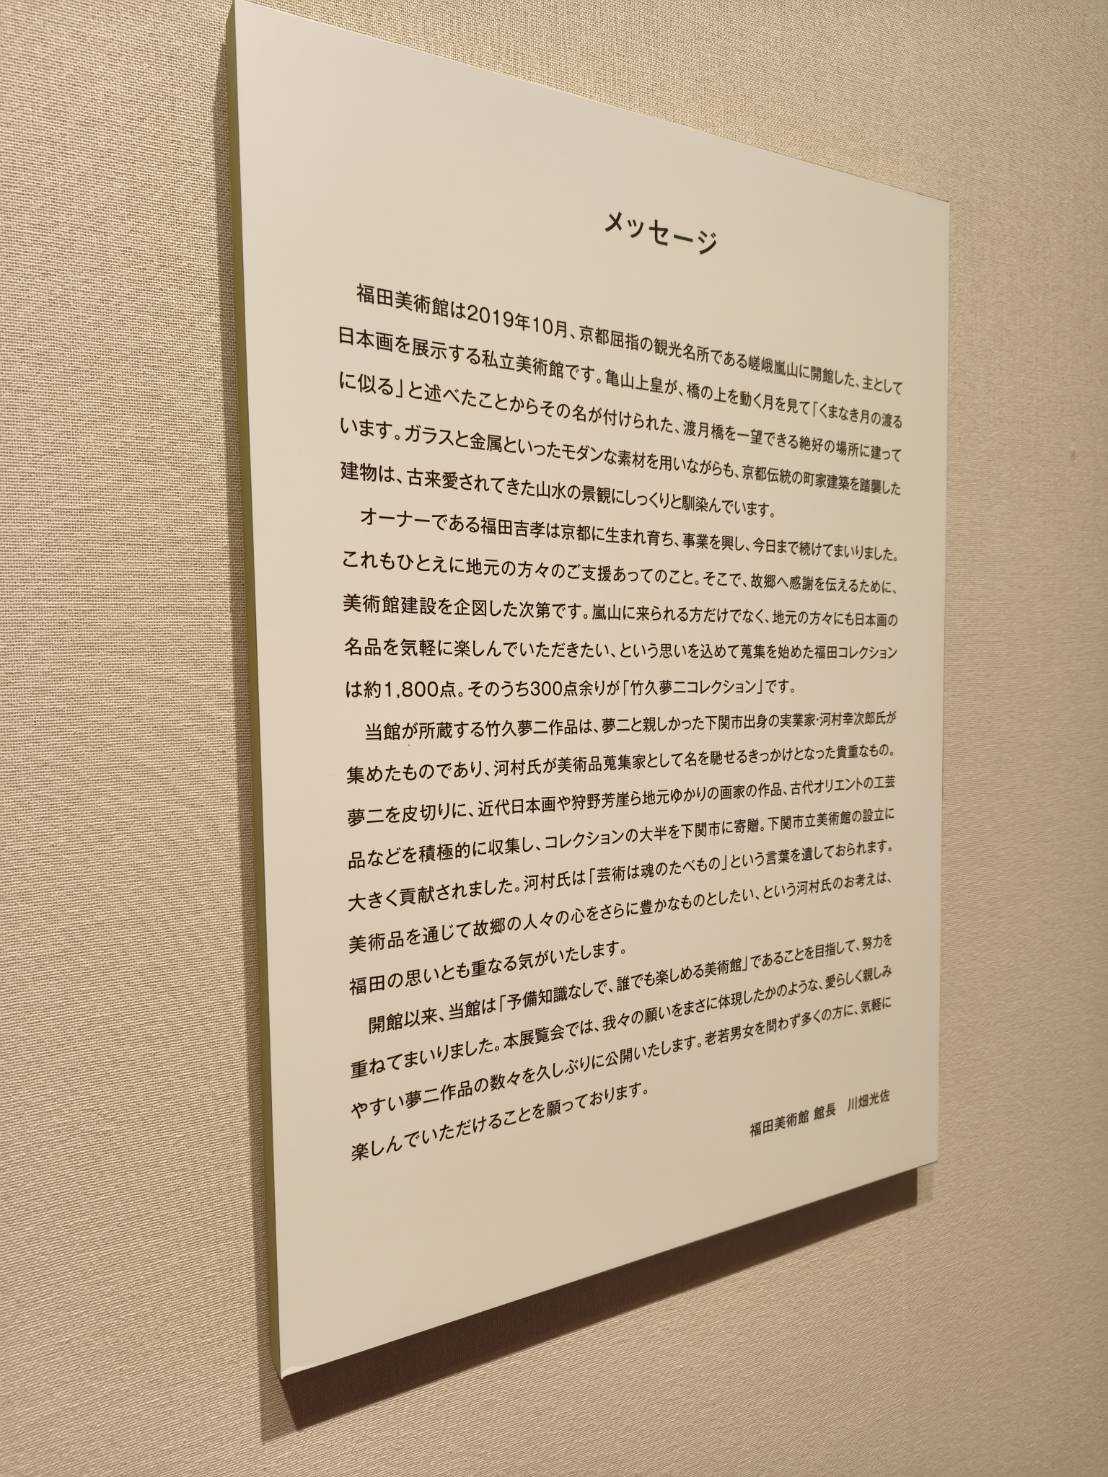 メッセージ
福田美術館は2019年10月、京都屈指の観光名所である嵯峨嵐山に開館した、主として
日本画を展示する私立美術館です。亀山上皇が、橋の上を動く月を見て「くまなき月の渡る
に似る」と述べたことからその名が付けられた、渡月橋を一望できる絶好の場所に建って
います。ガラスと金属といったモダンな素材を用いながらも、京都伝統の町家建築を踏襲した
建物は、古来愛されてきた山水の景観にしっくりと馴染んでいます。
オーナーである福田吉孝は京都に生まれ育ち、事業を興し、今日まで続けてまいりました。
これもひとえに地元の方々のご支援あってのこと。そこで、故郷へ感謝を伝えるために、
美術館建設を企図した次第です。嵐山に来られる方だけでなく、地元の方々にも日本画の
名品を気軽に楽しんでいただきたい、という思いを込めて蒐集を始めた福田コレクション
は約1,800点。そのうち300点余りが「竹久夢二コレクション」です。
当館が所蔵する竹久夢二作品は、夢二と親しかった下関市出身の実業家・河村幸次郎氏が
集めたものであり、河村氏が美術品蒐集家として名を馳せるきっかけとなった貴重なもの。
夢二を皮切りに、近代日本画や狩野芳崖ら地元ゆかりの画家の作品、古代オリエントの工芸
品などを積極的に収集し、コレクションの大半を下関市に寄贈。下関市立美術館の設立に
大きく貢献されました。河村氏は「芸術は魂のたべもの」という言葉を遺しておられます。
美術品を通じて故郷の人々の心をさらに豊かなものとしたい、という河村氏のお考えは、
福田の思いとも重なる気がいたします。
開館以来、当館は「予備知識なしで、誰でも楽しめる美術館」であることを目指して、努力を
重ねてまいりました。本展覧会では、我々の願いをまさに体現したかのような、愛らしく親しみ
やすい夢二作品の数々を久しぶりに公開いたします。老若男女を問わず多くの方に、気軽に
楽しんでいただけることを願っております。
福田美術館 館長　川畑光佐